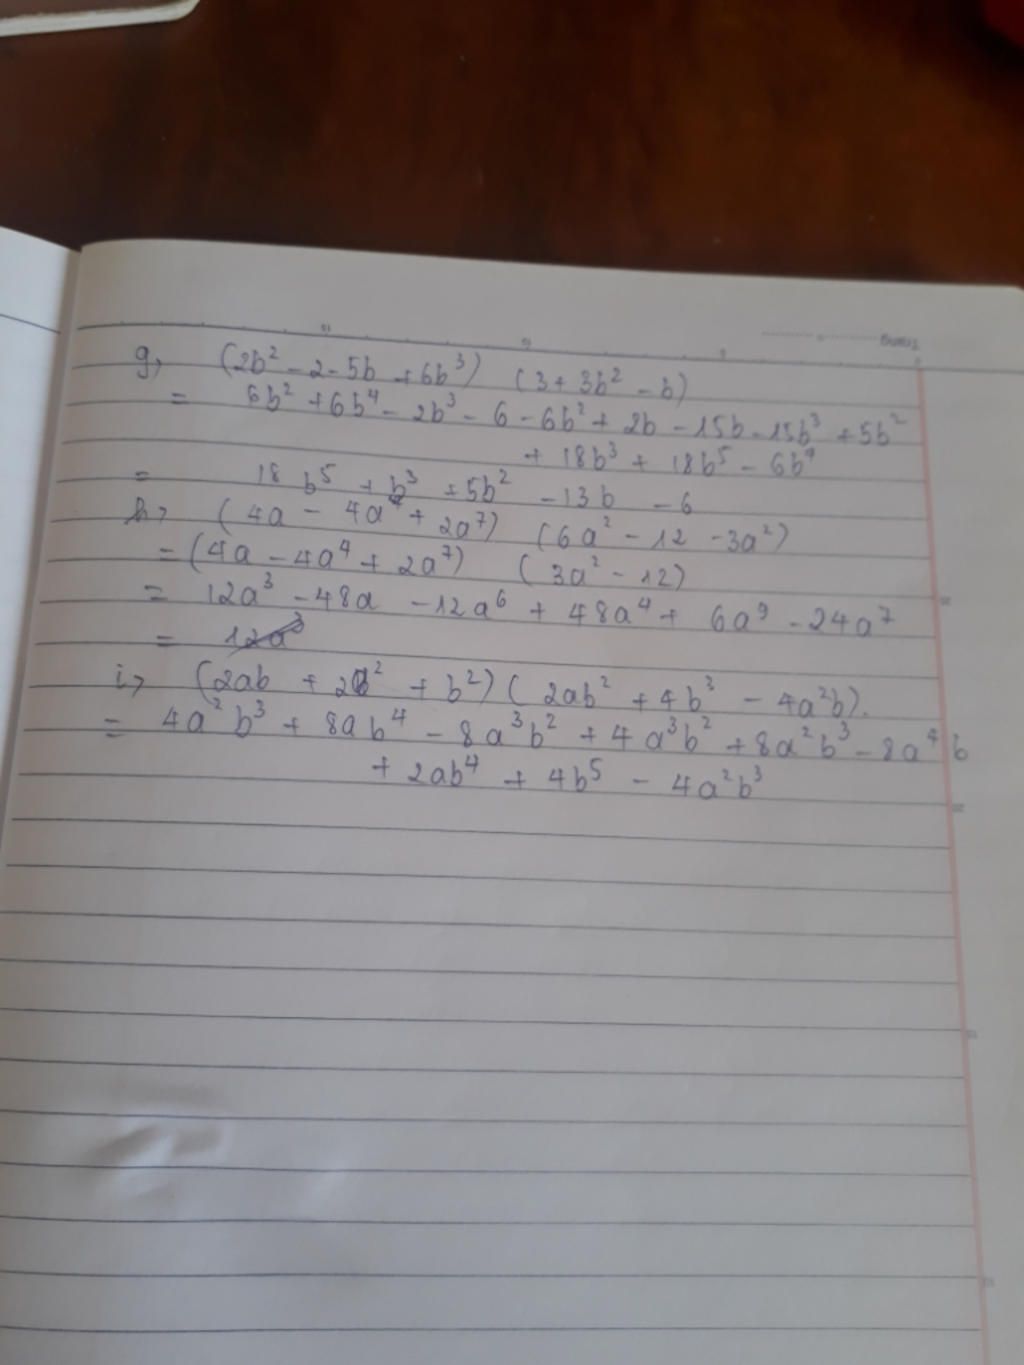 Trang
g, (2b² - 2 - 5b + 6b³) (3 + 3b² - b)
= 6b² + 6b⁴ - 2b³ - 6 - 6b² + 2b - 15b - 15b³ + 5b²
+ 18b³ + 18b⁵ - 6b⁴
= 18b⁵ + b³ + 5b² - 13b - 6
h, (4a - 4a⁴ + 2a⁷) (6a² - 12 - 3a²)
= (4a - 4a⁴ + 2a⁷) (3a² - 12)
= 12a³ - 48a - 12a⁶ + 48a⁴ + 6a⁹ - 24a⁷
= 12a³
i, (2ab + 2a² + b²) (2ab² + 4b³ - 4a²b).
= 4a²b³ + 8ab⁴ - 8a³b² + 4a³b² + 8a²b³ - 8a⁴b
+ 2ab⁴ + 4b⁵ - 4a²b³